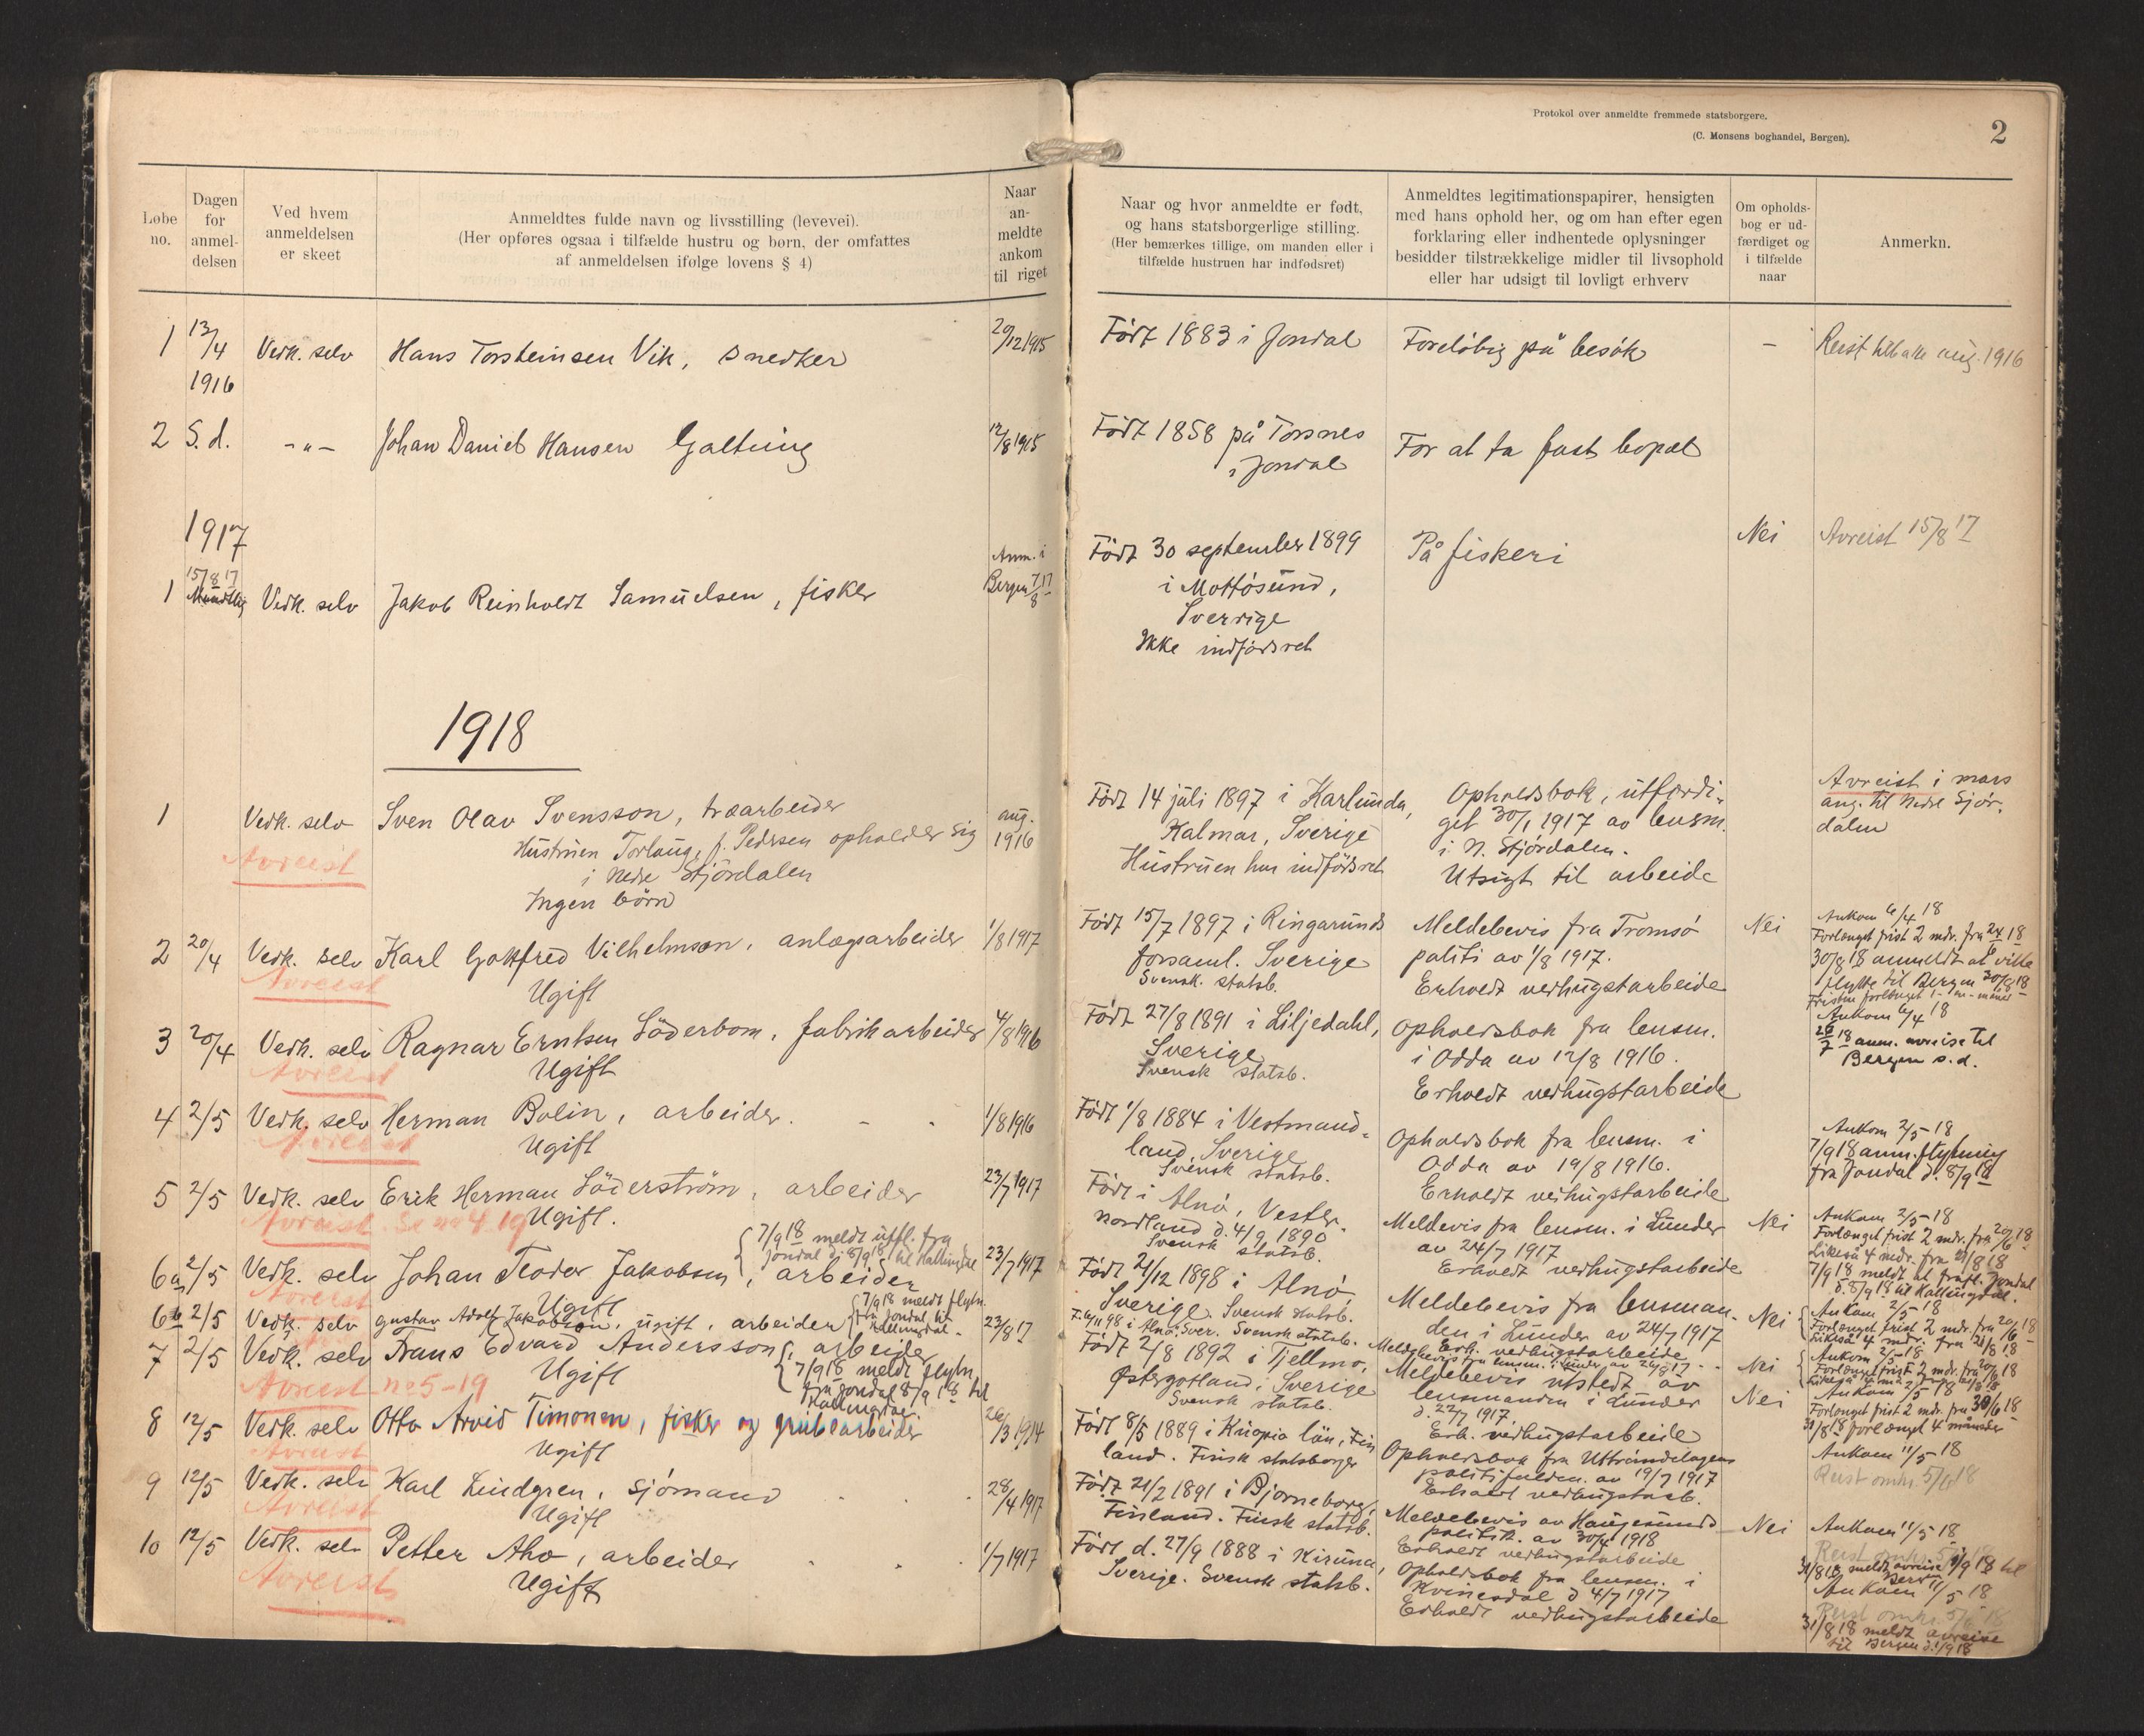 Protokol over anmeldte fremmede statsborgere.
(C. Monsens boghandel, Bergen).
2
Løbe no.
Dagen for anmeldelsen
Ved hvem anmeldelsen er skeet
Anmeldtes fulde navn og livsstilling (levevei).
(Her opføres ogsaa i tilfælde hustru og børn, der omfattes
af anmeldelsen ifølge lovens § 4)
Naar anmeldte ankom til riget
Naar og hvor anmeldte er født,
og hans statsborgerlige stilling.
(Her bemærkes tillige, om manden eller i
tilfælde hustruen har indfødsret)
Anmeldtes legitimationspapirer, hensigten
med hans ophold her, og om han efter egen
forklaring eller indhentede oplysninger
besidder tilstrækkelige midler til livsophold
eller har udsigt til lovligt erhverv
Om opholdsbog er udfærdiget og i tilfælde naar
Anmerkn.
1 13/4 1916 Vedk. selv Hans Torsteinsen Vik, snedker 20/12 1915
Født 1883 i Jondal
Foreløbig på besøk
-
Reist tilbake aug. 1916
2 S. d. -"- Johan Daniel Hansen Galtung 12/8 1915
Født 1858 på Torsnes
i Jondal
For at ta fast bopæl
1917
1 15/8 17 Mundtlig Vedk. selv Jakob Reinholdt Samuelsen, fisker
Anm. i
Bergen 7/8 17
Født 30 september 1899
i Mottøsund,
Sverige
Ikke indfødsret
På fiskeri
Nei
Avreist 15/8 17
1918
1 Vedk. selv Sven Olav Svensson, træarbeider
Hustruen Torlaug, f. Pedersen opholder sig
i Nedre Stjørdalen
Ingen børn
Avreist
aug. 1916
Født 14 juli 1897 i Karlunda,
Kalmar, Sverige
Hustruen har indfødsret
Opholdsbok, utfærdi-
get 30/1 1917 av lensm.
i N. Stjørdalen.
Utsigt til arbeide
Avreist i mars
ang. til Nedre Stjør-
dalen
2 20/4 Vedk. selv Karl Gottfred Vilhelmson, anlægsarbeider 1/8 1917
Avreist
Ugift
Født 15/7 1897 i Ringarunds
forsaml. Sverige
Svensk. statsb.
Meldebevis fra Tromsø
politi av 1/8 1917.
Erholdt vedhugstarbeide
Nei
Ankom 6/4 18
Forlænget frist 2 mdr. fra
30/8 18 anmeldt at ville
flytte til Bergen 30/8 18
3 20/4 Vedk. selv Ragnar Erntsen Söderbom, fabrikarbeider 4/8 1916
Avreist
Ugift
Født 27/8 1891 i Liljedahl,
Sverige
Svensk statsb.
Opholdsbok fra lensm.
i Odda av 12/8 1916.
Erholdt vedhugstarbeide
Ankom 6/4 18
26/7 18 anm. avreise til
Bergen s. d.
4 2/5 Vedk. selv Herman Bolin, arbeider. 1/8 1916
Avreist
Ugift
Født 1/8 1884 i Vestmand-
land, Sverige
Svensk statsb.
Opholdsbok fra lensm. i
Odda av 19/8 1916.
Erholdt vedhugstarbeide
Ankom 2/5 18
7/9 18 anm. flytning
fra Jondal d. 8/9 18
5 2/5 Vedk. selv Erik Herman Söderström, arbeider 23/7 1917
Avreist. Se no 4 19
Ugift.
Født i Alnö, Vester-
nordland d. 4/9 1890
Svensk statsb.
Meldevis fra lensm. i Lunder
av 24/7 1917
Erholdt vedhugstarbeide
Nei
Ankom 2/5 18
Forlænget frist 2 mdr. fra 20/6 18
Likeså 4 mdr. fra 21/8 18
7/9 18 meldt at fraflt. Jondal
d. 8/9 18 til Hallingdal.
6a 2/5 Vedk. selv Johan Teodor Jakobsen, arbeider 23/7 1917
7/9 18 meldt utfl. fra
Jondal d. 8/9 18 til Hallingdal
Avreist
Ugift
Født 21/12 1898 i Alnö,
Sverige. Svensk statsb.
Meldebevis fra lensman-
den i Lunder av 24/7 1917
Erh. vedhugstarbeide
Nei
Ankom 2/5 18
Forlænget frist 2 mdr. fra 20/6 18
Likeså 4 mdr. fra 21/8 18
6b 2/5 Vedk. selv Gustav Adolf Jakobson, ugift, arbeider 23/8 17
7/9 18 meldt flytn.
fra Jondal til
Hallingdal.
F. 16/11 98 i Alnö, Sver. Svensk statsb.
Nei
Ankom 2/5 18
7 2/5 Vedk. selv Frans Edvard Andersson, arbeider
Avreist no 5-19
Ugift
7/9 18 meldt flytn.
fra Jondal 8/9 18 til
Hallingdal.
Født 2/8 1892 i Tjellmo,
Østergotland, Sverige
Svensk statsb.
Meldebevis utstedt av
lensmanden i Lunder
d. 22/7 1917
Erh. vedhugstarbeide
Nei
Ankom 2/5 18
Forlænget frist 2 mdr. fra 30/6 18
31/8 18 forlænget 4 måneder
8 12/5 Vedk. selv Otto Arvid Timonen, fisker og grubearbeider 26/3 1914
Avreist
Ugift
Født 8/5 1889 i Kuopio län, Fin
land. Finsk statsborger
Opholdsbok fra Uttröndelagens
politifuldm. av 19/7 1917
Erholdt vedhugstarb.
Ankom 11/5 18
Reist omkr. 5/6 18
9 12/5 Vedk. selv Karl Lindgren, sjømand 28/4 1917
Avreist
Ugift
Født 21/2 1891 i Bjørneborg,
Finland. Finsk statsb.
Meldebevis av Haugesunds
politik. av 30/4 1918
Erholdt vedhugstarbeide
Nei
Ankom 11/5 18
31/8 18 meldt avreise 1/9 18 til
10 12/5 Vedk. selv Petter Aho, arbeider 1/7 1917
Avreist
Ugift
Født d. 27/9 1888 i Kiruna,
Sverige. Svensk statsb.
Opholdsbok fra lensm. i
Kvinesdal d 4/7 1917
Erholdt vedhugstarbeide
Ankom 11/5 18
31/8 18 meldt avreise
til Bergen d. 1/9 18